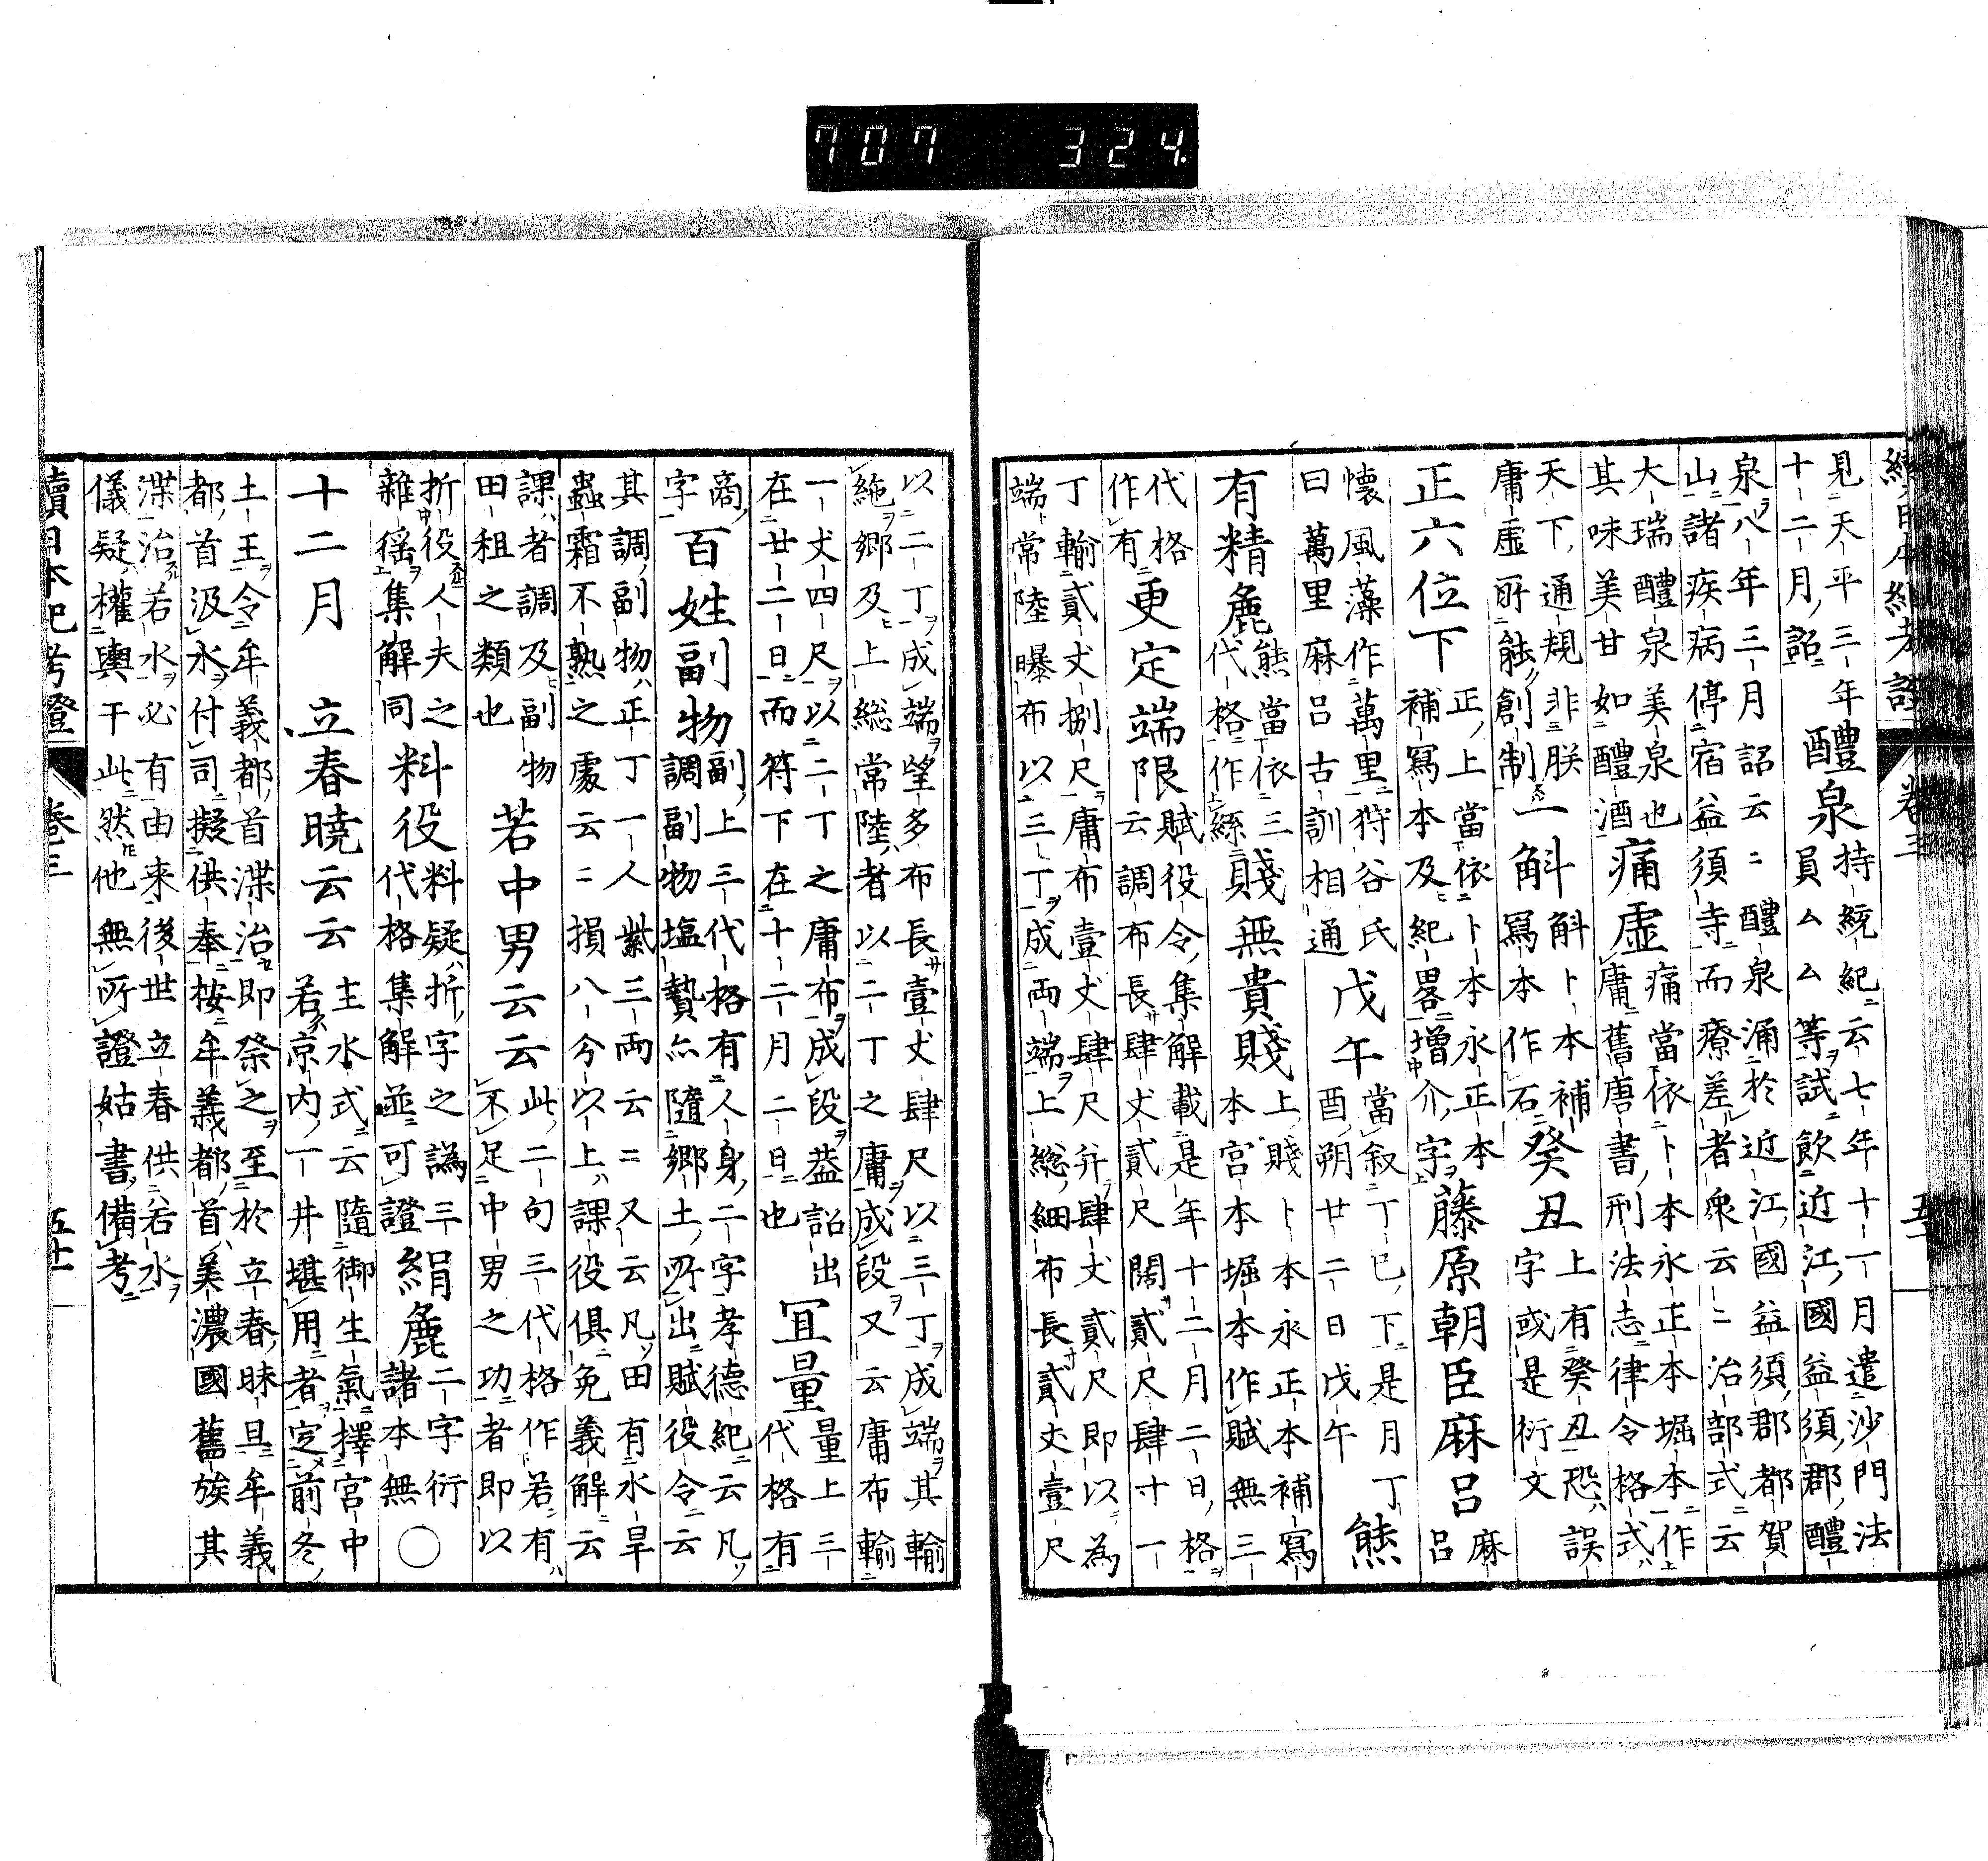 707 324
續日本紀考證 卷三
見天平三年十二月詔 醴泉 持統紀云七年十一月遣沙門法員厶厶等試飲近江國益須郡醴
泉八年三月詔云云醴泉涌於近江國益須郡都賀山諸疾病停宿益須寺而療差者衆云云治部式云
大瑞醴泉美泉也其味美甘如醴酒 痛虛 痛當依卜本永正本堀本作庸舊唐書刑法志律令格式
天下通規非朕庸虛所能創制 一斛 斛卜本補寫本作石 癸丑 上有癸丑恐誤字或是衍文
正六位下 正上當依卜本永正本補寫本及紀畧增介字 藤原朝臣麻呂 麻呂
懷風藻作萬里狩谷氏曰萬里麻呂古訓相通 戊午 當叙丁巳下是月丁酉朔廿二日戊午 熊
有精麁 熊當依三代格作絲 賤無貴賤 上賤卜本永正本補寫本宮本堀本作賦無三
代格作有 更定端限 賦役令集解載是年十二月二日格云調布長肆丈貳尺闊貳尺肆寸一
丁輸貳丈捌尺庸布壹丈肆尺并肆丈貳尺即以為端常陸曝布以三丁成兩端上総細布長貳丈壹尺
以二丁成端望多布長壹丈肆尺以三丁成端其輸絁郷及上総常陸者以二丁之庸成段又云庸布輸
一丈四尺以二丁之庸布成段葢詔出在廿二日而符下在十二月二日也 冝量 量上三代格有
商字 百姓副物 副上三代格有人身二字孝德紀云凡調副物塩贄亦隨郷土所出賦役令云
其調副物正丁一人紫三兩云云又云凡田有水旱蟲霜不熟之處云云損八分以上課役俱免義解云
課者調及副物田租之類也 若中男云云 此二句三代格作若有不足中男之功者即以
折役人夫之雜徭集解同 料役 料疑折字之譌三代格集解並可證 絹麁 二字衍諸本無 ○
十二月 立春曉云云 主水式云隨御生氣擇宮中若京内一井堪用者定前冬
土王令牟義都首渫治即祭之至於立春昧旦牟義都首汲水付司擬供奉按牟義都首美濃國舊族其
渫治若水必有由来後世立春供若水儀疑權輿于此然他無所證姑書備考
續日本紀考證 卷三